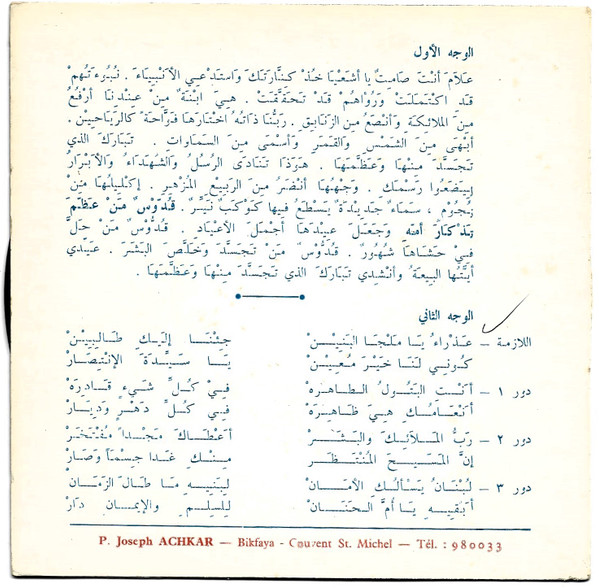 الوجه الأول
عَلاَمَ أنْتَ صَامِتٌ يا أَشَعْيَا خُذْ كِنَّارَتَكَ وَاسْتَدْعِي الأَنْبِيَاءَ . نُبُوءَتُهُمْ
قَد اكْتَمَلَتْ وَرُؤَاهُمْ قَدْ تَحَقَّقَتْ . هِيَ ابْنَةٌ مِنْ عِنْدِنَا أَرْفَعُ
مِنَ المَلائِكَةِ وَأَنْصَعُ مِنَ الزَنَابِقِ . رَبُّنَا ذَاتُهُ اخْتَارَهَا فَوَّاحَةً كَالرَيَاحِينِ .
أَبْهَى مِنَ الشَمْسِ وَالقَمَرِ وَأَسْمَى مِنَ السَمَاوَاتِ . تَبَارَكَ الذي
تَجَسَّدَ مِنْهَا وَعَظَّمَهَا . هُوَذَا تَنَادَى الرُسُلُ وَالشُهَدَاءُ وَالأَبْرَارُ
لِيَضَعُوا رَسْمَكِ . وَجْهُهَا أَنْضَرُ مِنَ الرَبِيعِ المُزْهِرِ . إِكْلِيلُهَا مِنْ
نُجُومٍ ، سَمَاءٌ جَدِيدَةٌ يَسْطَعُ فيهَا كَوْكَبٌ نَيِّرٌ . قُدُّوسٌ مَنْ عَظَّمَ
تَذْكَارَ أمّه وَجَعَلَ عِيدَهَا أَجْمَلَ الأَعْيَادِ . قُدُّوسٌ مَنْ حَلَّ
فِي حَشَاهَا شُهُورٌ . قُدُّوسٌ مَنْ تَجَسَّدَ وَخَلَّصَ البَشَرَ . عَيِّدِي
أَيَّتُهَا البِيعَةُ وَأَنْشِدِي تَبَارَكَ الذي تَجَسَّدَ مِنْهَا وَعَظَّمَهَا .
الوجه الثاني
اللازمة – عَذْرَاءُ يَا مَلْجَا البَنِيْنْ جِئْنَا إِلَيْكِ طَالِبِيْنْ
كُونِي لَنَا خَيْرَ مُعِيْنْ يَا سَيِّدَةَ الإِنْتِصَارْ
دور ١ – أَنْتِ البَتُولُ الطَاهِرَهْ فِيْ كُلِّ شَيْءٍ قَادِرَهْ
أَنْعَامُكِ هِيَ ظَاهِرَهْ فِي كُلِّ دَهْرٍ وَدِيَارْ
دور ٢ – رَبُّ المَلائِكْ وَالبَشَرْ أَعْطَاكِ مَجْداً مُفْتَخَرْ
إِنَّ المَسِيحَ المُنْتَظَرْ مِنْكِ غَدَا جِسْماً وَصَارْ
دور ٣ – لُبْنَانُ يَسْأَلُكِ الأَمَانْ لِبَنِيهِ مَا طَالَ الزَمَانْ
أَبْقِيهِ يَا أُمَّ الحَنَانْ لِلسِلْمِ وَالإِيمَانِ دَارْ
P. Joseph ACHKAR — Bikfaya - Couvent St. Michel — Tél. : 980033